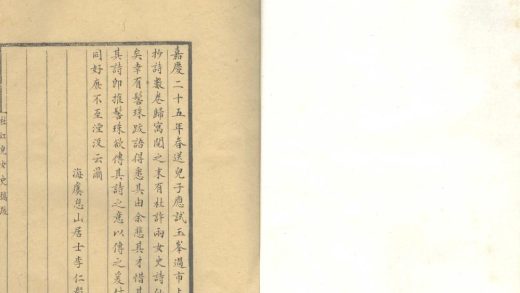 嘉慶二十五年春送兒子應試玉峯過市
抄詩數卷歸寓閱之末有杜詐雨女史詩
矣幸有髻珠跋語得悉其由余悲其才惜其
其詩即推髻珠欲傳其詩之意以傳之爰
同好庶不至湮沒云爾
海虞慈山居士李仁
女史